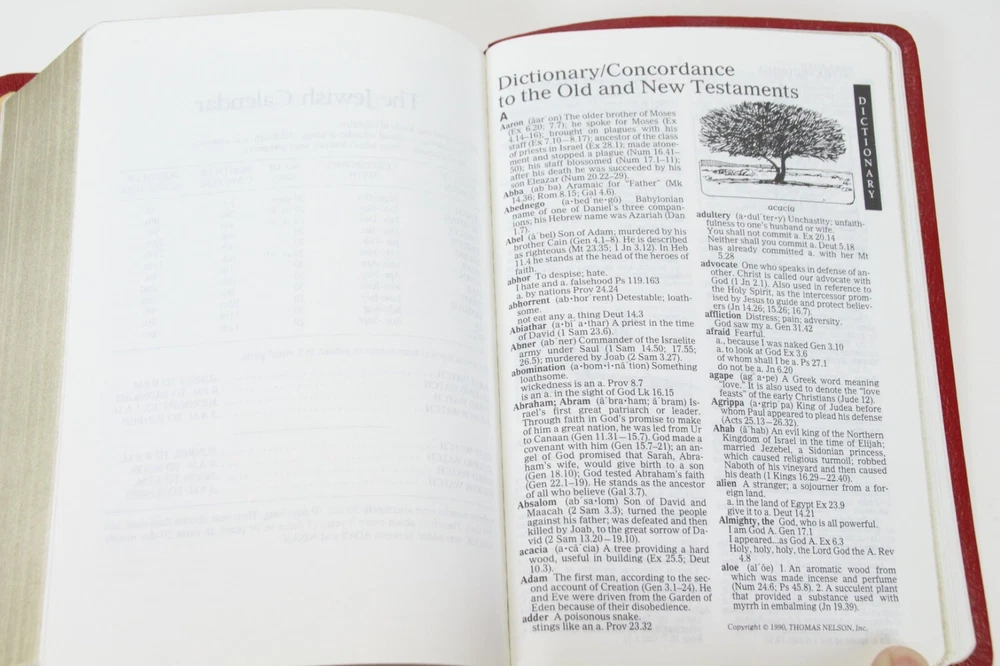 Dictionary/Concordance
to the Old and New Testaments
A
Aaron (âar´on) The older brother of Moses
(Ex 6.20; 7.7); he spoke for Moses (Ex
4.14–16); brought on plagues with his
staff (Ex 7.10–8.17); ancestor of the class
of priests in Israel (Ex 28.1); made atone-
ment and stopped a plague (Num 16.41–
50); his staff blossomed (Num 17.1–11);
after his death he was succeeded by his
son Eleazar (Num 20.22–29).
Abba (ab´ba) Aramaic for "Father" (Mk
14.36; Rom 8.15; Gal 4.6).
Abednego (a•bed´ne•gō) Babylonian
name of one of Daniel's three compan-
ions; his Hebrew name was Azariah (Dan
1.7).
Abel (ā´bel) Son of Adam; murdered by his
brother Cain (Gen 4.1–8). He is described
as righteous (Mt 23.35; 1 Jn 3.12). In Heb
11.4 he stands at the head of the heroes of
faith.
abhor To despise; hate.
I hate and a. falsehood Ps 119.163
a. by nations Prov 24.24
abhorrent (ab•hor´rent) Detestable; loath-
some.
not eat any a. thing Deut 14.3
Abiathar (a•bī´a•thar) A priest in the time
of David (1 Sam 23.6).
Abner (ab´ner) Commander of the Israelite
army under Saul (1 Sam 14.50; 17.55;
26.5); murdered by Joab (2 Sam 3.27).
abomination (a•bom•i•nā´tion) Something
loathsome.
wickedness is an a. Prov 8.7
is an a. in the sight of God Lk 16.15
Abraham; Abram (ā´bra•ham; ā´bram) Is-
rael's first great patriarch or leader.
Through faith in God's promise to make
of him a great nation, he was led from Ur
to Canaan (Gen 11.31–15.7). God made a
covenant with him (Gen 15.7–21); an an-
gel of God promised that Sarah, Abra-
ham's wife, would give birth to a son
(Gen 18.10); God tested Abraham's faith
(Gen 22.1–19). He stands as the ancestor
of all who believe (Gal 3.7).
Absalom (ab´sa•lom) Son of David and
Maacah (2 Sam 3.3); turned the people
against his father; was defeated and then
killed by Joab, to the great sorrow of Da-
vid (2 Sam 13.20–19.10).
acacia (a•cā´cia) A tree providing a hard
wood, useful in building (Ex 25.5; Deut
10.3).
Adam The first man, according to the sec-
ond account of Creation (Gen 3.1–24). He
and Eve were driven from the Garden of
Eden because of their disobedience.
adder A poisonous snake.
stings like an a. Prov 23.32
acacia
adultery (a•dul´ter•y) Unchastity; unfaith-
fulness to one's husband or wife.
You shall not commit a. Ex 20.14
Neither shall you commit a. Deut 5.18
has already committed a. with her Mt
5.28
advocate One who speaks in defense of an-
other. Christ is called our advocate with
God (1 Jn 2.1). Also used in reference to
the Holy Spirit, as the intercessor prom-
ised by Jesus to guide and protect believ-
ers (Jn 14.26; 15.26; 16.7).
affliction Distress; pain; adversity.
God saw my a. Gen 31.42
afraid Fearful.
a., because I was naked Gen 3.10
a. to look at God Ex 3.6
of whom shall I be a. Ps 27.1
do not be a. Jn 6.20
agape (ag´a•pe) A Greek word meaning
"love." It is also used to denote the "love
feasts" of the early Christians (Jude 12).
Agrippa (a•grip´pa) King of Judea before
whom Paul appeared to plead his defense
(Acts 25.13–26.32).
Ahab (ā´hab) An evil king of the Northern
Kingdom of Israel in the time of Elijah;
married Jezebel, a Sidonian princess,
which caused religious turmoil; robbed
Naboth of his vineyard and then caused
his death (1 Kings 16.29–22.40).
alien A stranger; a sojourner from a for-
eign land.
a. in the land of Egypt Ex 23.9
give it to a. Deut 14.21
Almighty, the God, who is all powerful.
I am God A. Gen 17.1
I appeared...as God A. Ex 6.3
Holy, holy, holy, the Lord God the A. Rev
4.8
aloe (al´ōe) 1. An aromatic wood from
which was made incense and perfume
(Num 24.6; Ps 45.8). 2. A succulent plant
that provided a substance used with
myrrh in embalming (Jn 19.39).
Copyright © 1990, THOMAS NELSON, Inc.
DICTIONARY
The Jewish Calendar